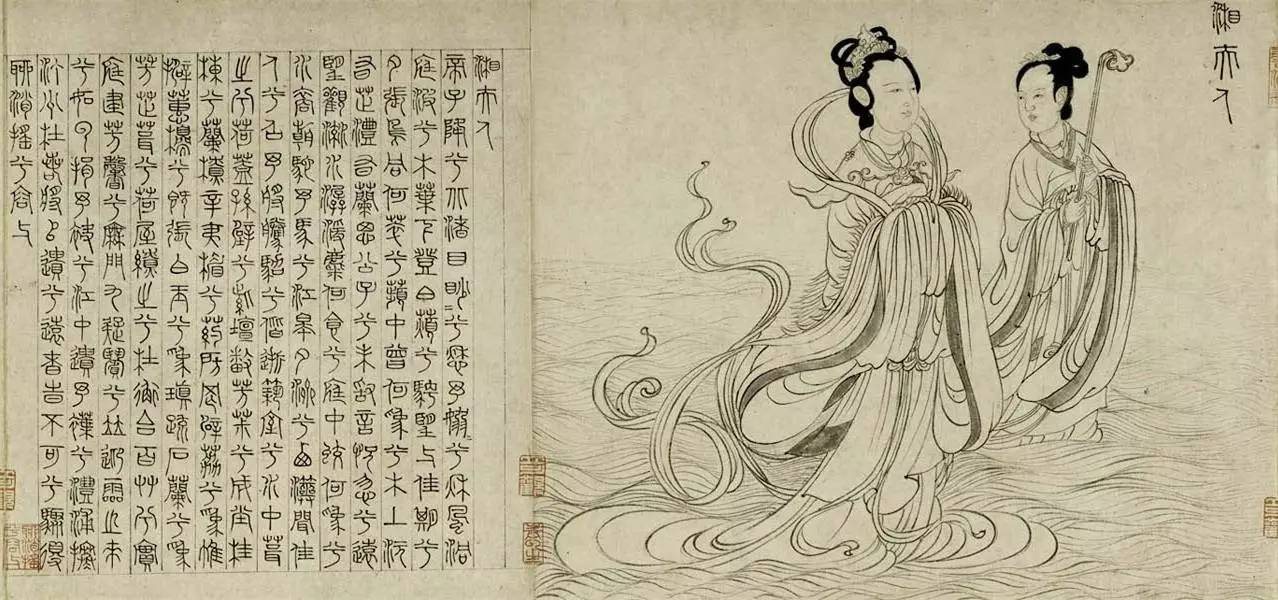 湘夫人
湘夫人
帝子降兮北渚目眇=兮愁予嫋=兮秋風洞
庭波兮木葉下登白薠兮騁望与佳期兮
夕張鳥何萃兮蘋中罾何為兮木上沅
有芷澧有蘭思公子兮未敢言怳忽兮遠
望觀流水潺湲麋何食兮庭中蛟何為兮
水裔朝馳予馬兮江皋夕濟兮西澨聞佳
人兮召予將騰駕兮偕逝築室兮水中葺
之兮荷蓋蓀壁兮紫壇播芳菽兮成堂桂
棟兮蘭橑辛夷楣兮葯房罔薜荔兮為帷
擗蕙櫋兮既張白玉兮為瑱疏石蘭兮為
芳芷葺兮荷屋繚之兮杜衡合百艸兮實
庭建芳馨兮廡門九疑賓兮並迎靈之來
兮如雲捐予袂兮江中遺予褋兮澧浦搴
汀洲杜若將以遺兮遠者時不可兮驟得
聊逍遙兮容与